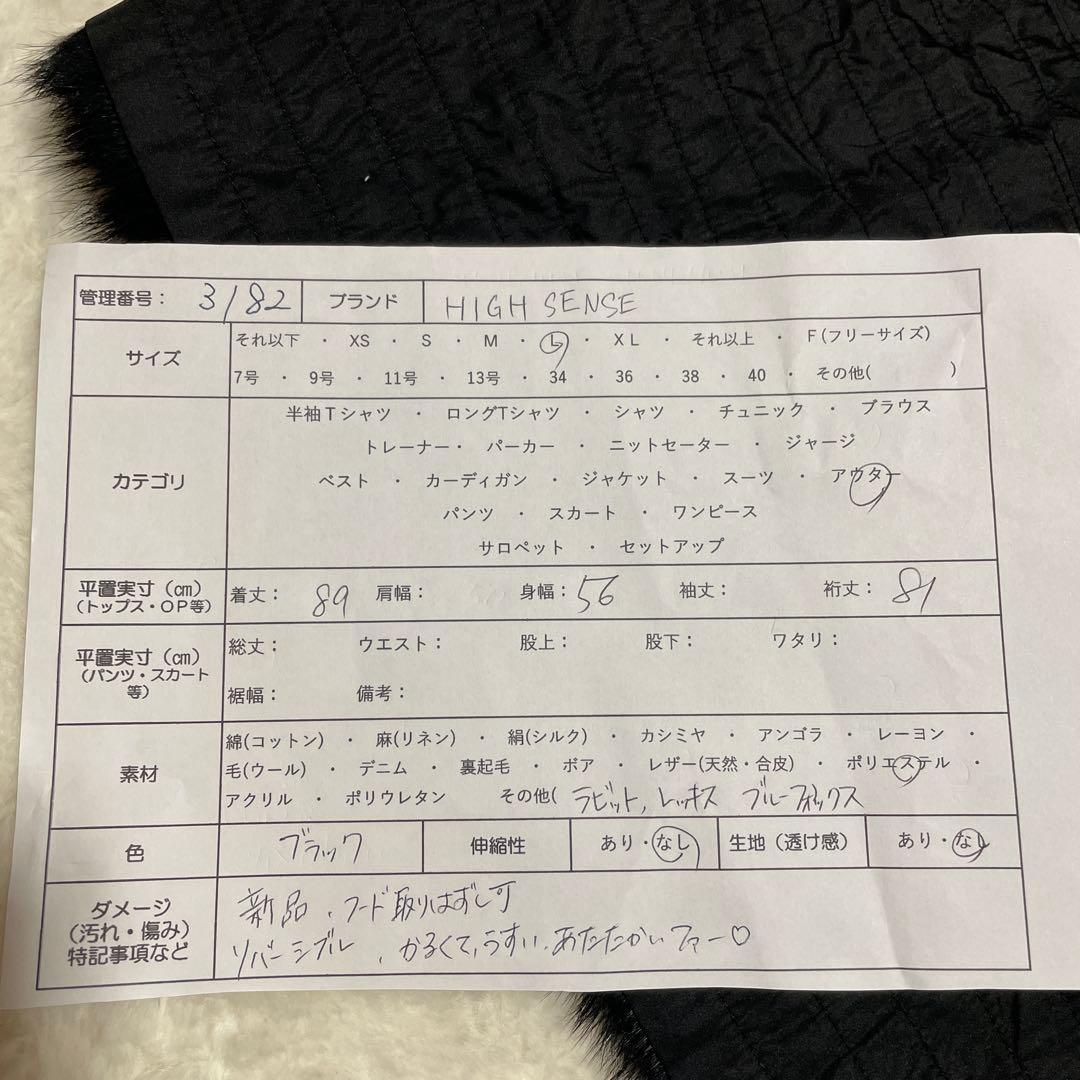 管理番号： 3182 ブランド HIGH SENSE
サイズ それ以下 ・ XS ・ S ・ M ・ L ・ XL ・ それ以上 ・ F(フリーサイズ)
7号 ・ 9号 ・ 11号 ・ 13号 ・ 34 ・ 36 ・ 38 ・ 40 ・ その他( )
カテゴリ 半袖Tシャツ ・ ロングTシャツ ・ シャツ ・ チュニック ・ ブラウス
トレーナー・ パーカー ・ ニットセーター ・ ジャージ
ベスト ・ カーディガン ・ ジャケット ・ スーツ ・ アウター
パンツ ・ スカート ・ ワンピース
サロペット ・ セットアップ
平置実寸（㎝） 着丈： 89 肩幅： 身幅： 56 袖丈： 裄丈： 81
（トップス・OP等）
平置実寸（㎝） 総丈： ウエスト： 股上： 股下： ワタリ：
（パンツ・スカート等）
裾幅： 備考：
素材 綿(コットン) ・ 麻(リネン) ・ 絹(シルク) ・ カシミヤ ・ アンゴラ ・ レーヨン ・
毛(ウール) ・ デニム ・ 裏起毛 ・ ボア ・ レザー(天然・合皮) ・ ポリエステル ・
アクリル ・ ポリウレタン その他( ラビット, レッキス ブルーフォックス
色 ブラック 伸縮性 あり・なし 生地（透け感） あり・なし
ダメージ 新品、フード取りはずし可
（汚れ・傷み）
特記事項など リバーシブル、かるくて、うすい、あたたかいファー♡